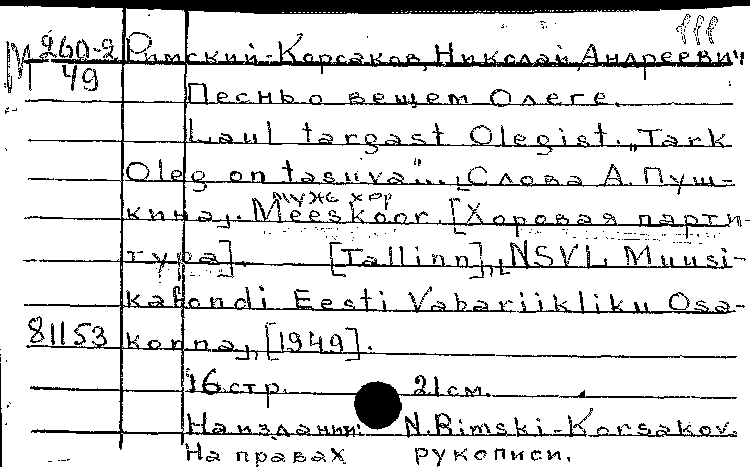 М 260-2 Римский-Корсаков, Николай Андреевич
49
Песнь о вещем Олеге.
Laul targast Olegist. "Tark
Oleg on tasuva"... [Слова А. Пуш-
муж. хор
кина]. Meeskoor. [Хоровая парти-
тура]. [Tallinn], NSVL Muusi-
kafondi Eesti Vabariikliku Osa-
81153 konna], [1949].
16 стр. 21 см.
На издании: N. Rimski-Korsakov.
На правах рукописи.